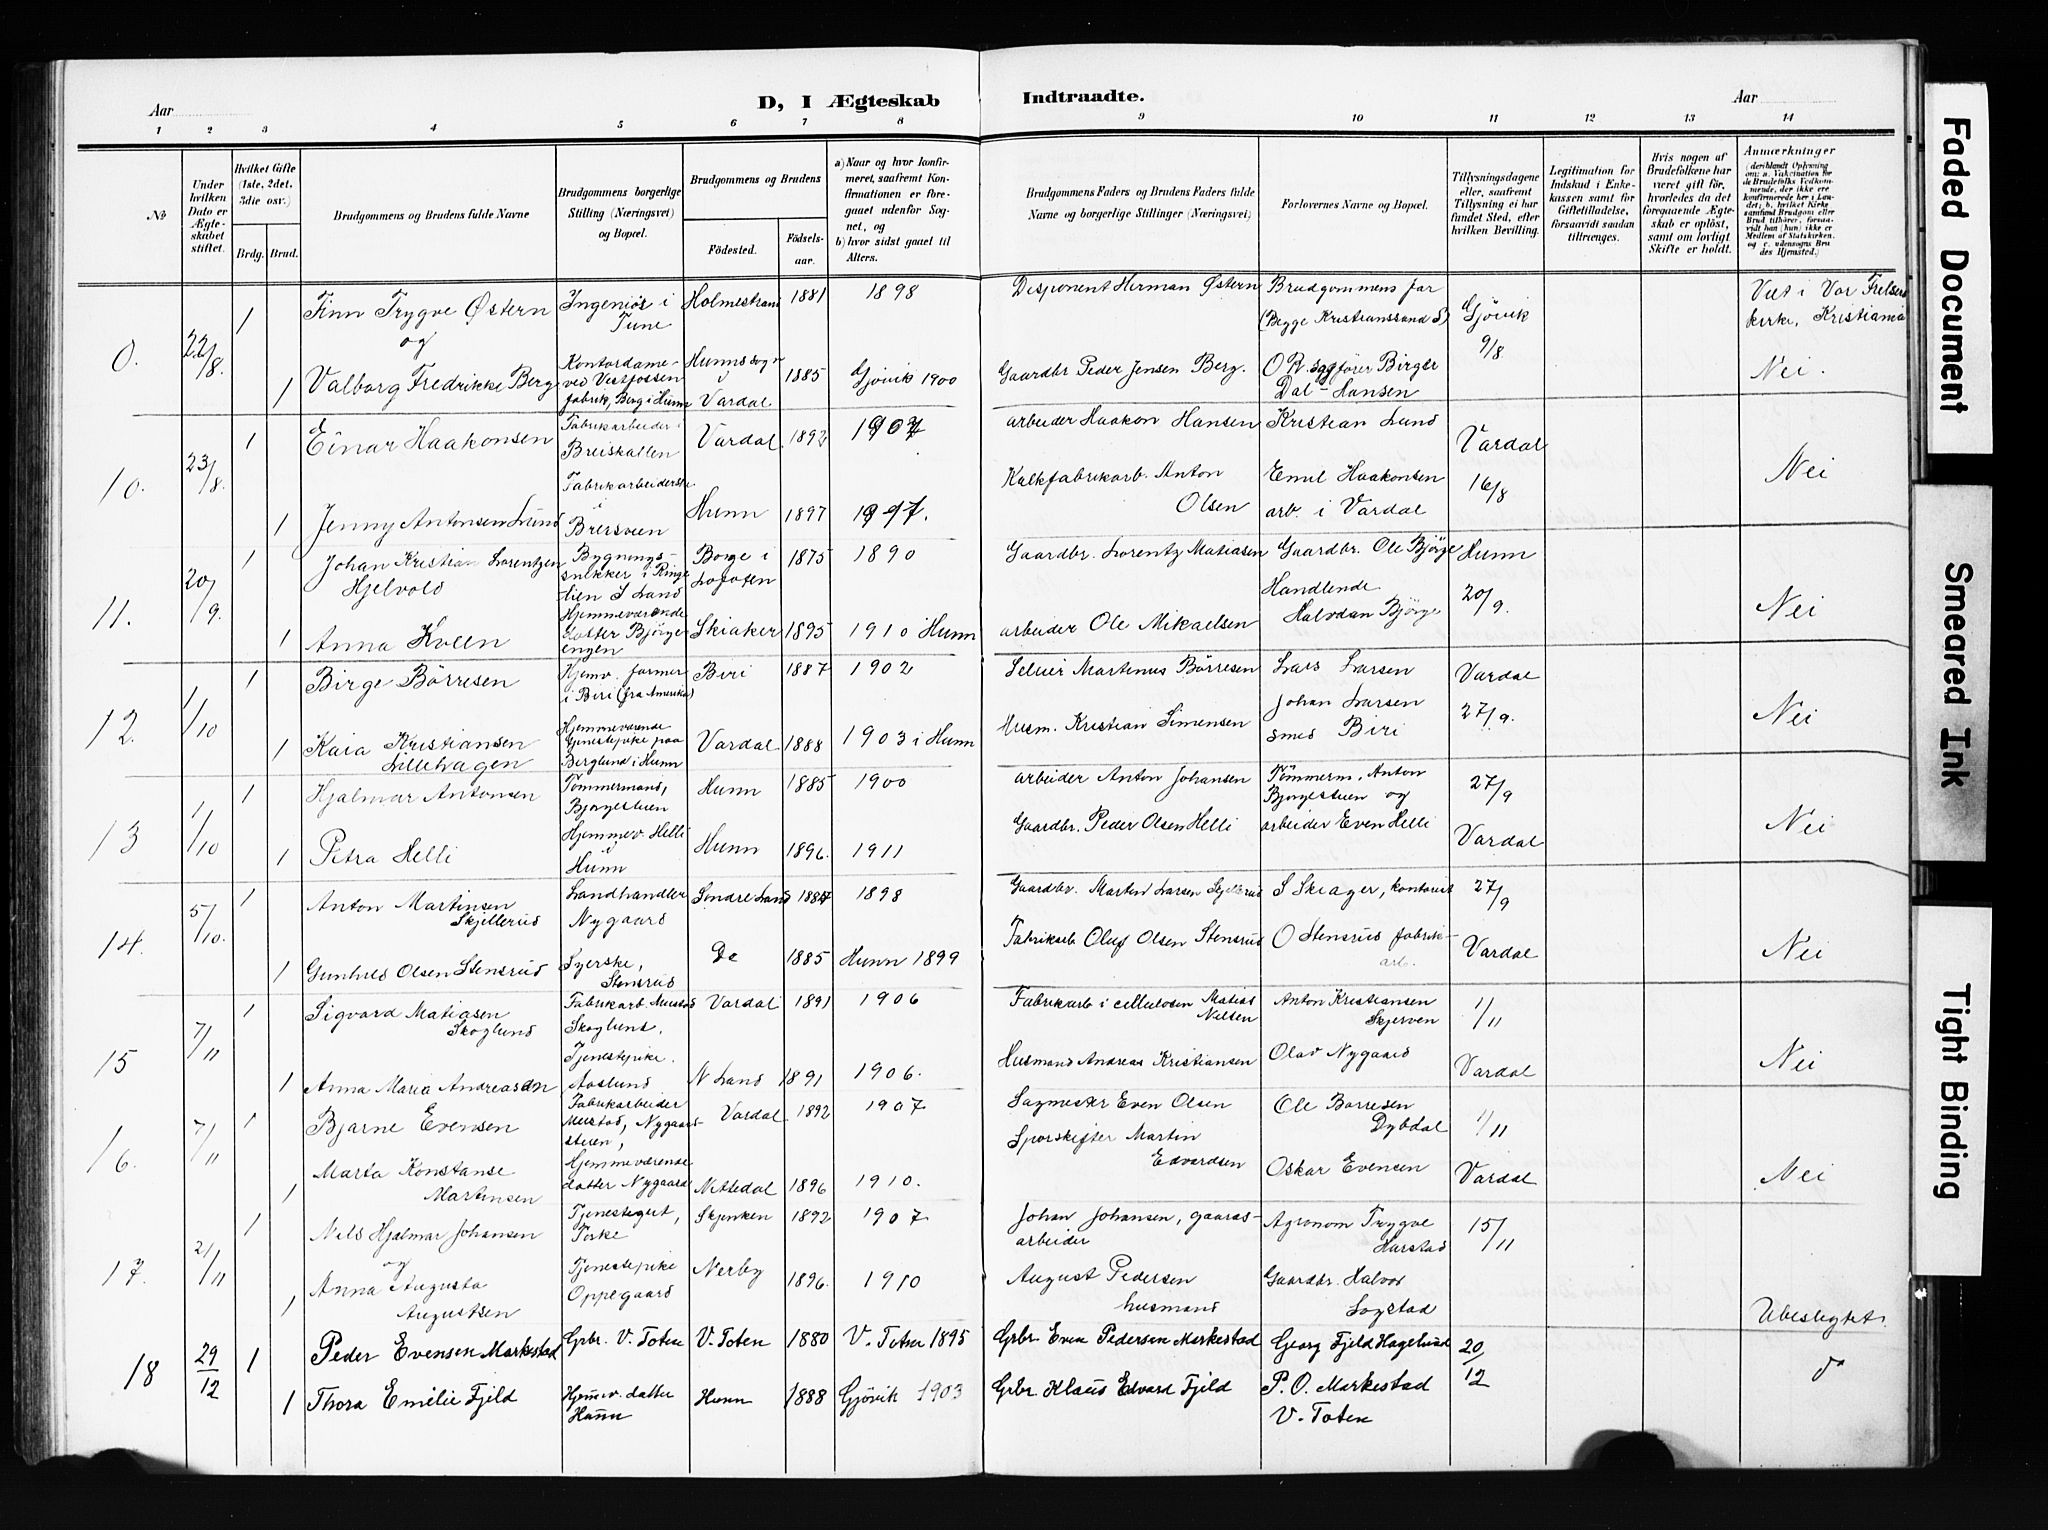 D, I Ægteskab Indtraadte.
Aar
Aar
1 2 3 4 5 6 7 8 9 10 11 12 13 14
No
Under hvilken Dato er Ægteskabet stiftet.
Hvilket Gifte (1ste, 2det, 3die osv.)
Brdg. Brud.
Brudgommens og Brudens fulde Navne
Brudgommens borgerlige Stilling (Næringsvei) og Bopæl.
Brudgommens og Brudens
Fødested.
Fødselsaar.
a) Naar og hvor konfirmeret, saafremt Konfirmationen er foregaaet udenfor Sognet, og
b) hvor sidst gaaet til Alters.
Brudgommens Faders og Brudens Faders fulde Navne og borgerlige Stillinger (Næringsvei)
Forlovernes Navne og Bopæl.
Tillysningsdagene eller, saafremt Tillysning ei har fundet Sted, efter hvilken Bevilling.
Legitimation for Indskud i Enkekassen samt for Giftetilladelse, forsaavidt saadan tiltrænges.
Hvis nogen af Brudefolkene har været gift før, hvorledes da det foregaaende Ægteskab er opløst, samt om lovligt Skifte er holdt.
Anmærkninger
0. 22/8. 1 Finn Trygve Østern Ingeniør i Tune Holmestrand 1881 1898 Disponent Herman Østern (Begge Kristianssand S) Brudgommens far Gjøvik 9/8 Viet i Vor Frelsers kirke, Kristiania
og
1 Valborg Fredrikke Berg Kontordame ved Vestfossen fabrik, Berg i Hunn Hunns sogn i Vardal 1885 Gjøvik 1900 Gaardbr Peder Jensen Berg. O.R.sagfører Birger Dal-Hansen Nei.
10. 23/8. 1 Einar Haakonsen Fabrikarbeider i Breiskallen Vardal 1892 1907 arbeider Haakon Hansen Kristian Lund Vardal 16/8 Nei
1 Jenny Antonsen Lund Fabrikarbeiderske i Hunn 1897 Kalkfabrikarb. Anton Olsen Emil Haakonsen arb. i Vardal
11. 20/9. 1 Johan Kristian Lorentzen Hjelvold Bygningssnekker i Ringelien S Land Borge i Lofoten 1875 1890 Gaardbr. Lorentz Matiasen Gaardbr. Ole Bjørge Hunn 20/9. Nei
1 Anna Kveen Hjemmeværende Bjørgeengen Skiaker 1895 1910 i Hunn arbeider Ole Mikaelsen Handlende Halvdan Bjørge
12. 1/10 1 Birge Børresen Hjemv. farmer i Biri (fra Amerika) Biri 1887 1902 Martinus Børresen Lars Larsen Vardal 27/9. Nei
1 Kaia Kristiansen Lillehagen Hjemmeværende Tjenestepike paa Berglund i Hunn Vardal 1888 1903 i Hunn Husm. Kristian Simensen Johan Larsen smed Biri
13 1/10 1 Hjalmar Antonsen Tømmermand, Bjørgestuen Hunn 1885 1900 arbeider Anton Johansen Tømmerm. Anton Bjørgestuen og 27/9 Vardal Nei
1 Petra Helli Hjemmev. Helli i Hunn Hunn 1896. 1911 Gaardbr. Peder Olsen Helli arbeider Even Helli
14. 5/10. 1 Anton Martinsen Skjellerud Landhandler Nygaard Søndre Land 1898 Gaardbr. Martin Larsen S Skiager, kontorist 27/9 Vardal Nei
1 Gunhild Olsen Stensrud Syerske, Stensrud Do 1885 Hunn 1899 Fabrikarb Oluf Olsen Stensrud O Stensrud fabrikarb.
15 7/11 1 Sigvard Matiasen Skoglund Fabrikarb. Mustad Skoglund. Vardal 1891 1906 Fabrikarb i cellulosen Matias Nilsen Anton Kristiansen Skjerven 1/11 Vardal Nei
1 Anna Maria Andreasen Tjenestepike. Aaslund N Land 1891 1906. Husmand Andreas Kristiansen Olav Nygaard
16. 7/11 1 Bjarne Evensen Fabrikarbeider Mustad, Nygaardstuen, Vardal 1892 1907 Sagmester Even Olsen Ole Børresen Dybdal 1/11 Vardal Nei
1 Marta Konstanse Martinsen Hjemmeværende datter Nygaard Nittedal 1896 1910. Sporskifter Martin Edvardsen Oskar Evensen
17. 21/11 1 Nils Hjalmar Johansen Tjenestegut, Forke Skjenken 1892 1907 Johan Johansen, gaardsarbeider Agronom Trygve Harstad 15/11
og
1 Anna Augusta Augustsen Tjenestepike Oppegaard Nerby 1896. 1910 August Pedersen husmand Gaardbr. Halvor Sogstad Ubeslegtet.
18 29/12 1 Peder Evensen Markestad Grbr. V. Toten V. Toten 1880 V. Toten 1895 Grbr Even Pedersen Markestad Georg Fjeld Hagelund 20/12 do
1 Thora Emilie Fjeld Hjemmev. datter Hunn Hunn 1888 Gjøvik 1903 Grbr Klaus Edvard Fjeld P. O. Markestad V. Toten
Faded Document
Smeared Ink
Tight Binding